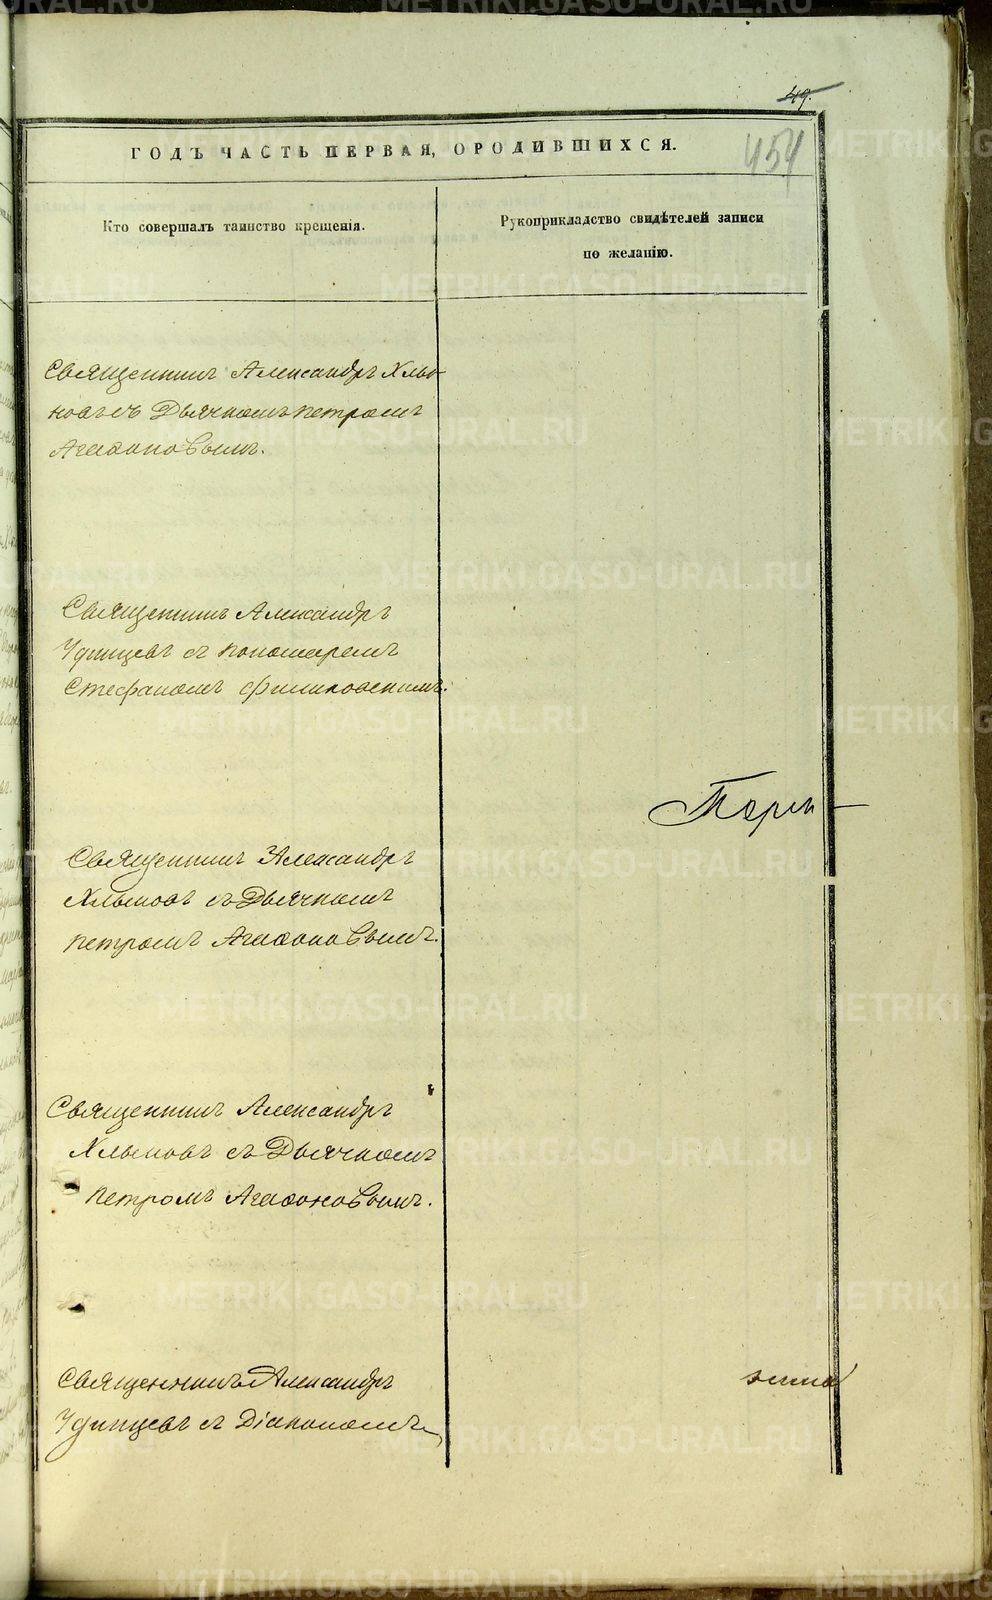 49.
ГОДЪ ЧАСТЬ ПЕРВАЯ, ОРОДИВШИХСЯ.
454
Кто совершалъ таинство крещенія.
Рукоприкладство свидѣтелей записи
по желанію.
Священникъ Александръ Хлы-
новъ съ Дьячкомъ Петромъ
Агафоновымъ.
Священникъ Александръ
Удинцевъ съ Пономаремъ
Стефаномъ Филиповскимъ.
Священникъ Александръ
Хлыновъ съ Дьячкомъ
Петромъ Агафоновымъ.
Священникъ Александръ
Хлыновъ съ Дьячкомъ
Петромъ Агафоновымъ.
Священникъ Александръ
Удинцевъ съ Діакономъ
METRIKI.GASO-URAL.RU